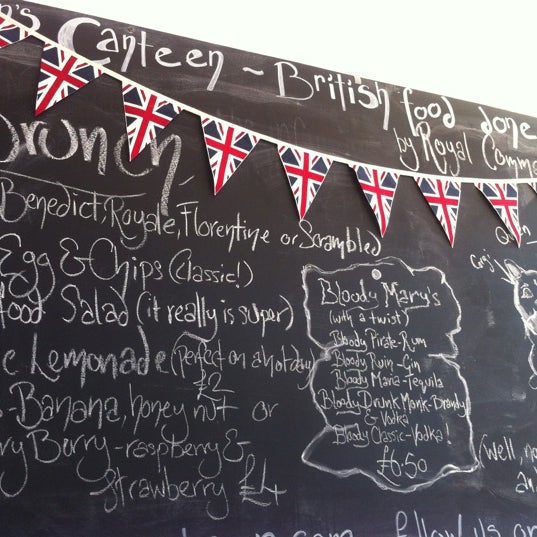 's Canteen ~ British food done
by Royal Comma
Brunch
Benedict, Royale, Florentine or Scrambled
Egg & Chips (classic!)
food Salad (it really is super)
Lemonade (perfect on a hot day)
£2
Banana, honey nut or
Berry - raspberry &
strawberry £4
Bloody Mary's
(with a twist)
Bloody Pirate-Rum
Bloody Ruin-Gin
Bloody Maria-Tequila
Bloody Drunk Monk-Brandy
& Vodka
Bloody Classic-Vodka!
£6.50
Queen
(Well, no
an
follow us on